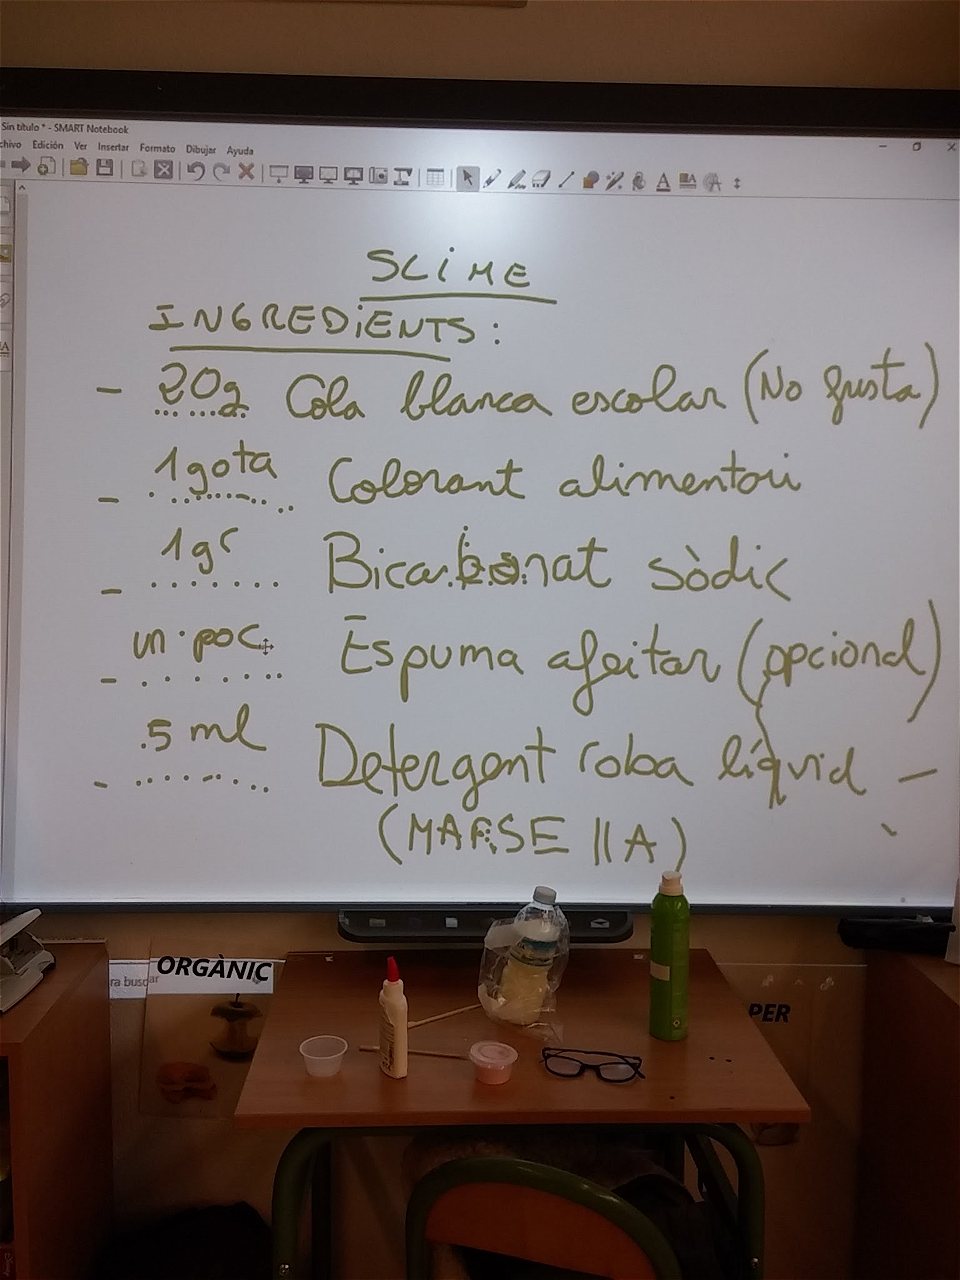 Sin título * - SMART Notebook
chivo Edición Ver Insertar Formato Dibujar Ayuda
SLiME
INGREDiENTS:
- 20g Cola blanca escolar (No fusta)
- 1 gota Colorant alimentari
- 1 gr Bicarbonat sòdic
- un poc Espuma afeitar (opcional)
- 5 ml Detergent roba líquid -
(MARSELLA)
ORGÀNIC
ra buscar
PER